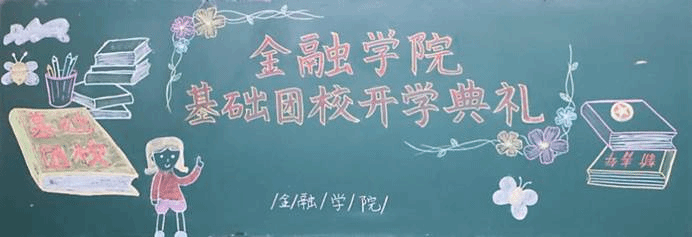 金融学院
基础团校开学典礼
基础
团校
新青年
/金/融/学/院/